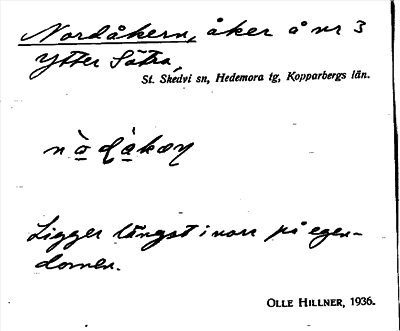 Nordåkern, åker å nr 3
Ytter Sätra,
St. Skedvi sn, Hedemora tg, Kopparbergs län.
Ligger längst i norr på egen-
domen.
OLLE HILLNER, 1936.